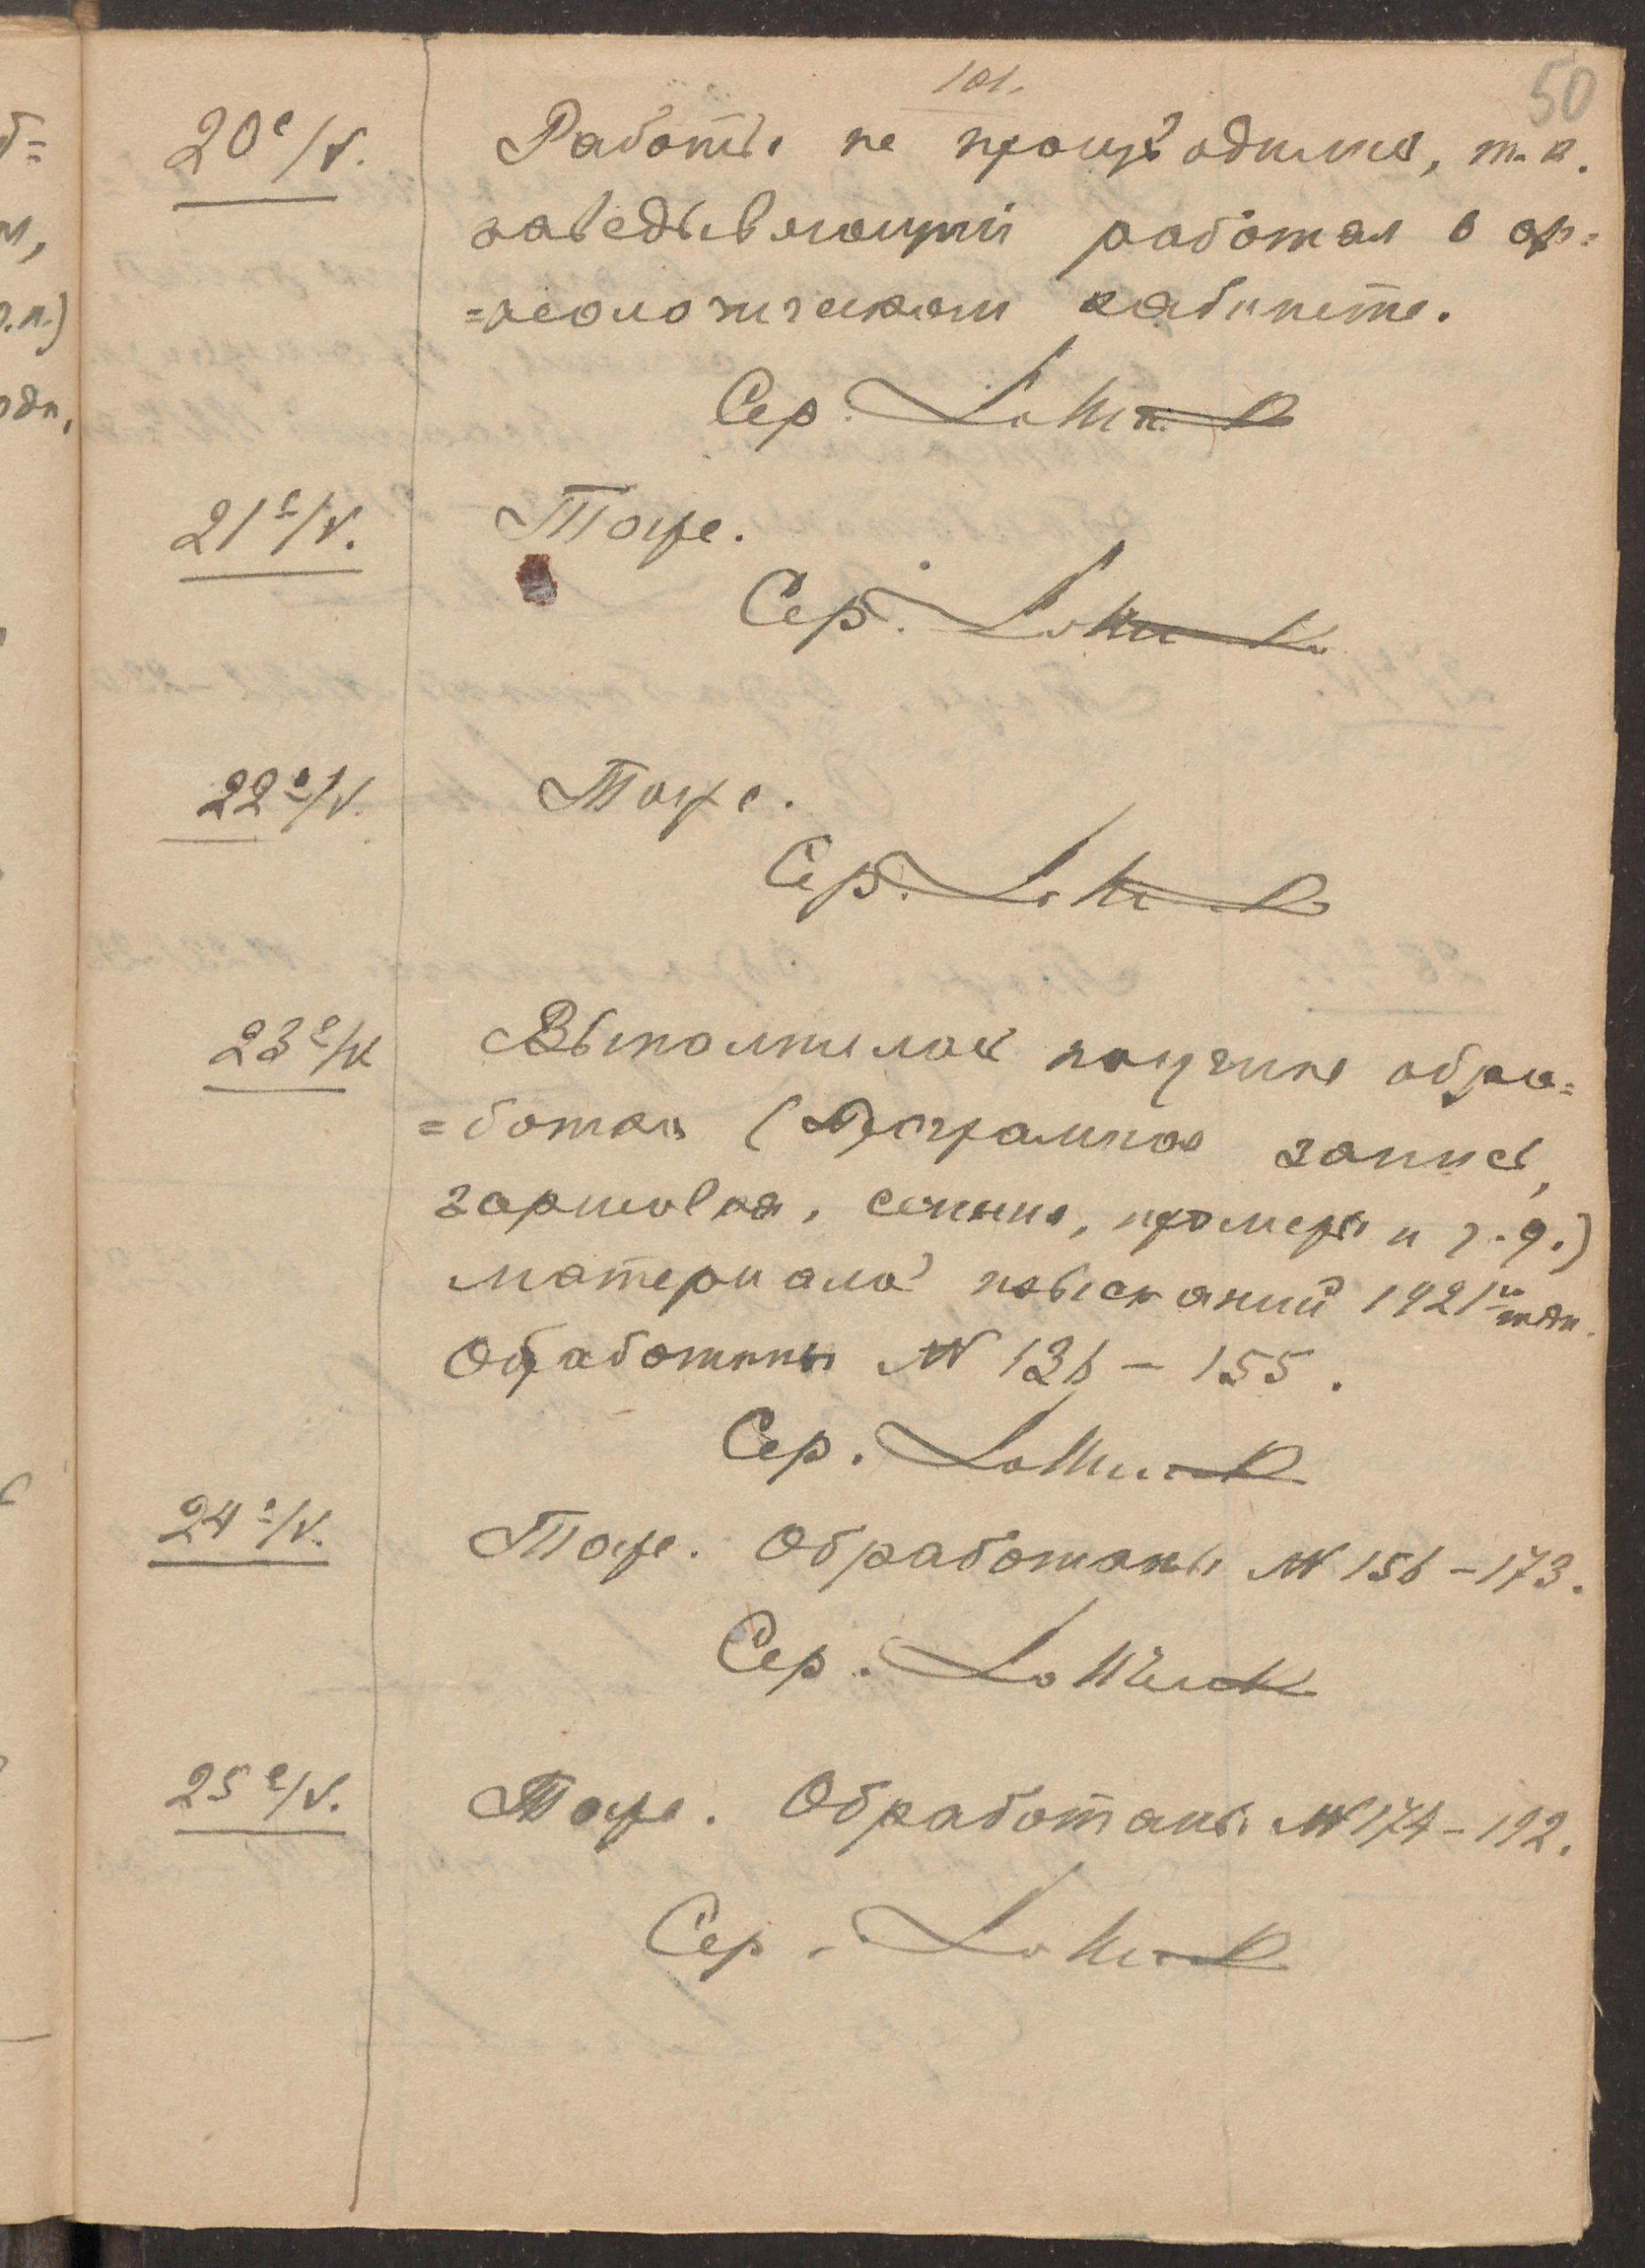 101.
50
20е/V.
Работы не производились, т. к.
заведывающий работал в ар=
=хеологическом кабинете.
Сер.
21е/V.
Тоже.
Сер.
22е/V.
Тоже.
Сер.
23е/V
Выполнилась научная обра=
=ботка (Програмная запись,
зарисовка, сечения, промеры и т. д.)
материала изысканий 1921го
Обработаны № 136 – 155.
Сер.
24е/V.
Тоже. Обработаны № 156 – 173.
Сер.
25е/V.
Тоже. Обработаны № 174 – 192.
Сер.